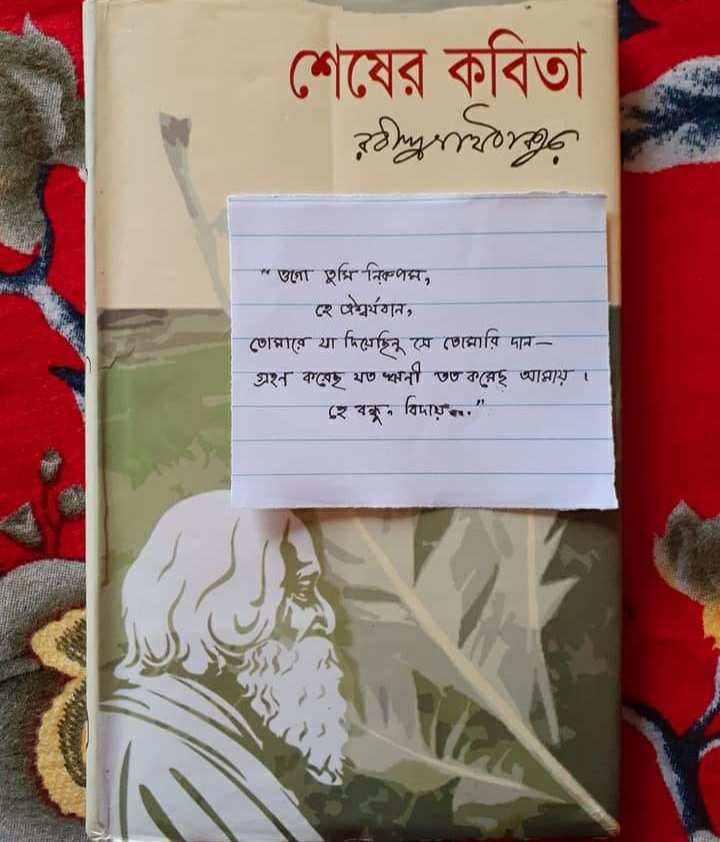 শেষের কবিতা
রবীন্দ্রনাথ ঠাকুর
" ওগো তুমি নিরুপম,
হে ঐশ্বর্যবান,
তোমারে যা দিয়েছিনু সে তোমারি দান—
গ্রহন করেছ যত ঋনী তত করেছ আমায় ।
হে বন্ধু, বিদায়..."